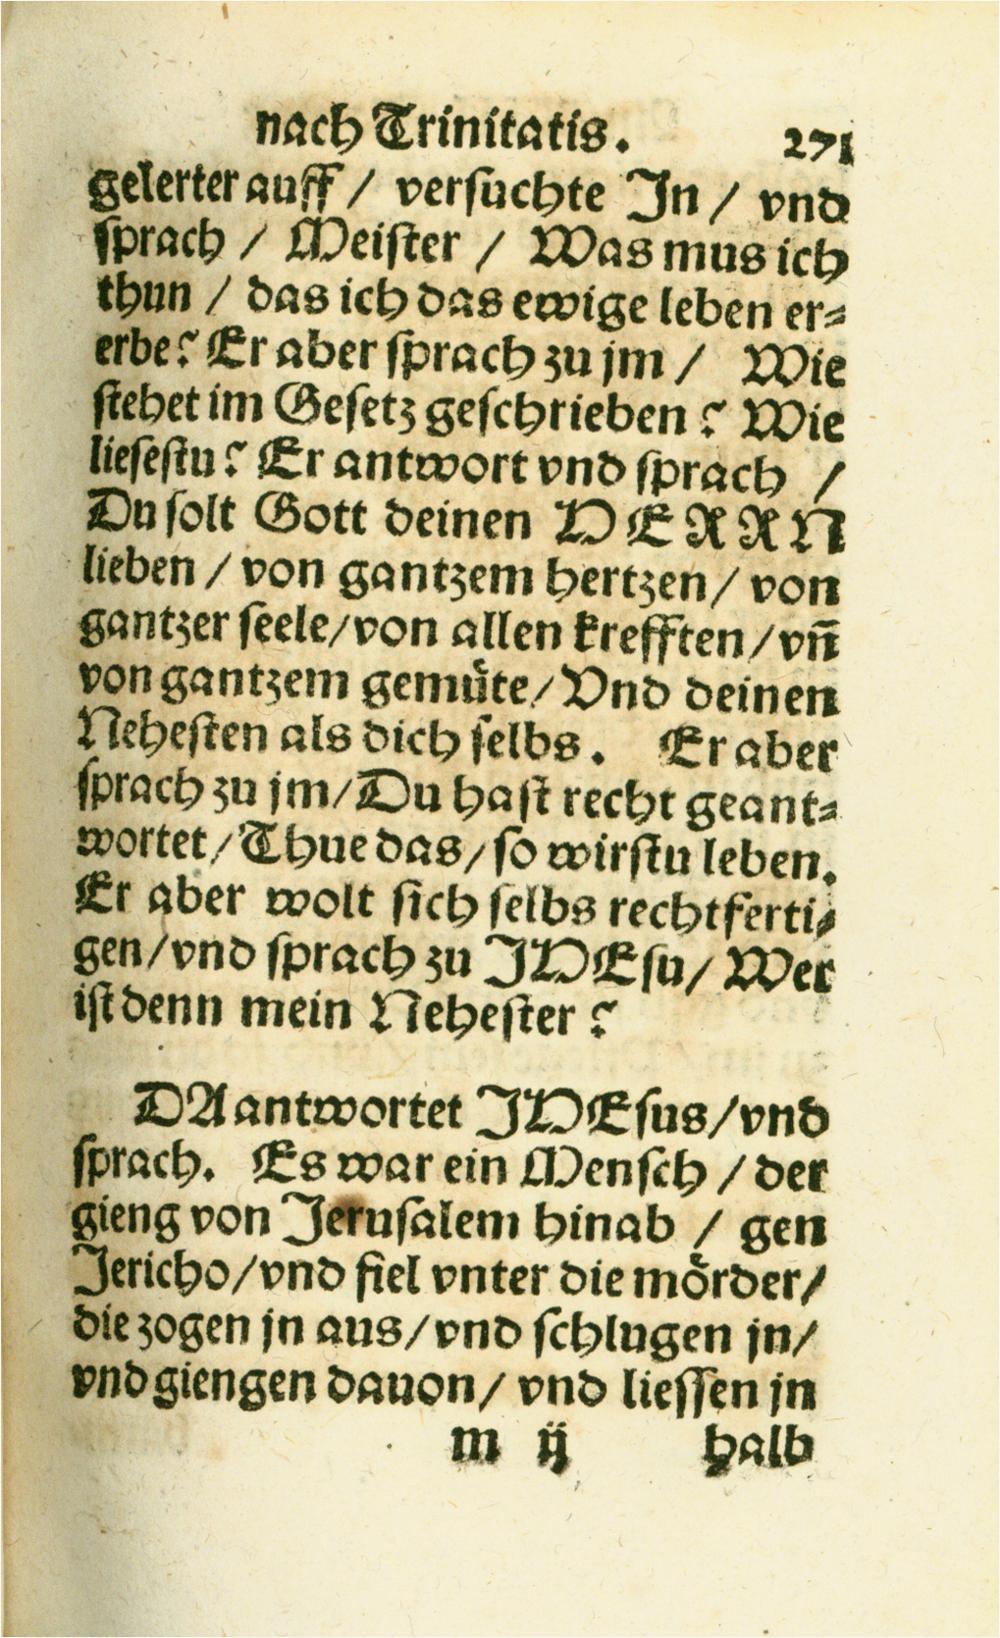 nach Trinitatis. 271
gelerter auff / versuchte In / vnd
sprach / Meister / Was mus ich
thun / das ich das ewige leben er⸗
erbe? Er aber sprach zu jm / Wie
stehet im Gesetz geschrieben? Wie
liesestu? Er antwort vnd sprach /
Du solt Gott deinen HERRN
lieben / von gantzem hertzen / von
gantzer seele / von allen krefften / vn̄
von gantzem gemuͤte / Vnd deinen
Nehesten als dich selbs. Er aber
sprach zu jm / Du hast recht geant⸗
wortet / Thue das / so wirstu leben.
Er aber wolt sich selbs rechtferti⸗
gen / vnd sprach zu JHEsu / Wer
ist denn mein Nehester?
DA antwortet JHEsus / vnd
sprach. Es war ein Mensch / der
gieng von Jerusalem hinab / gen
Jericho / vnd fiel vnter die moͤrder /
die zogen jn aus / vnd schlugen jn /
vnd giengen dauon / vnd liessen jn
m ij halb